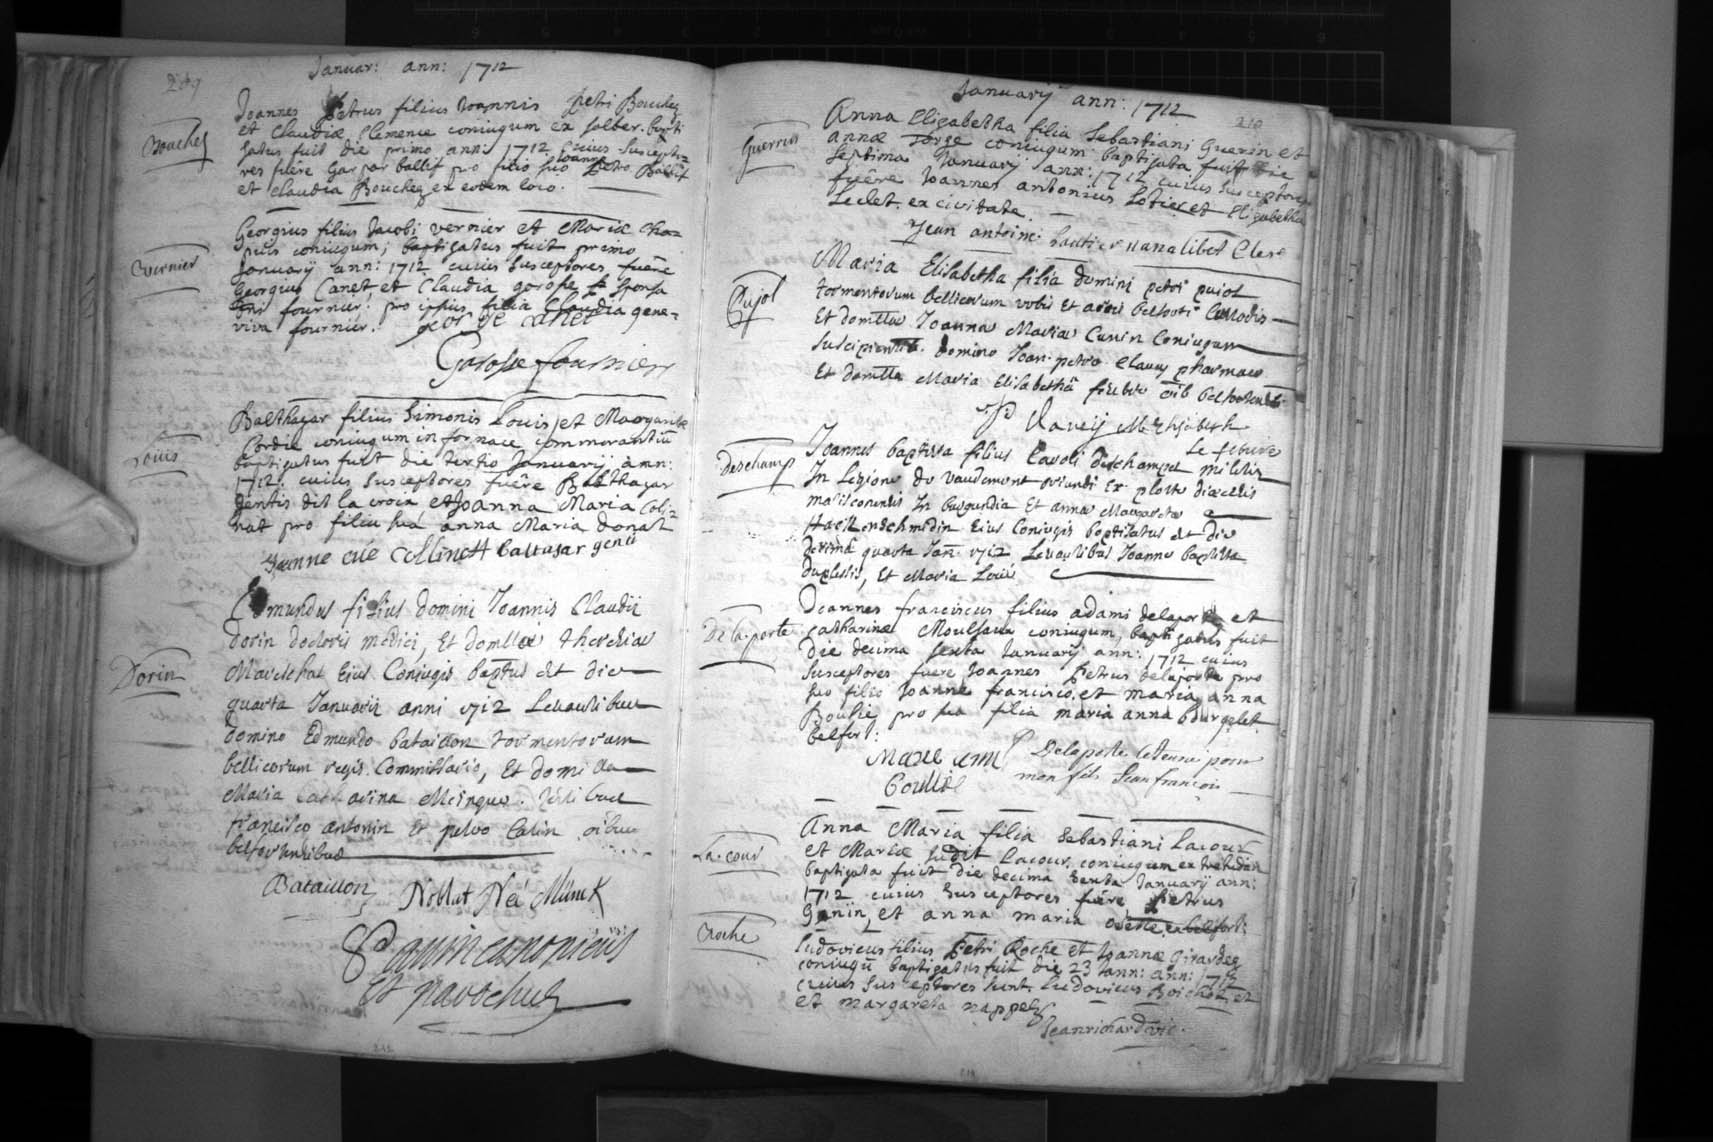 Januar: ann: 1712
209
Joannes Petrus filius Joannis Petri Bouchez
et Claudiæ Clemence coniugum ex salber. bapti
Bouchez
satus fuit die primo anni 1712 Cuius Suscepto=
res fuêre Gaspar ballif pro filio suo Joanne Petro Ballif
et Claudia Bouchez ex eodem loco.
Georgius filius Jacobi vernier et Mariæ Cha=
puis coniugum; baptizatus fuit primo
vernier
Januarij ann: 1712 cuius Susceptores fuêre
Georgius Canet et Claudia gorosse sponsa
fournier: pro ipsius filia Claudia gene=
viva fournier.
George Canet
Gorosse fournier
Balthazar filius Simonis Louis, et Margaritæ
Cordie coniugum in fornace commorantiū
Louis
baptizatus fuit die tertio Januarij ann:
1712. cuius susceptores fuêre Balthazar
gentis dit la croix et Joanna Maria Coli=
nat pro filia sua anna Maria Donat
Jeanne Collinett baltasar genti
Edmundus filius domini Joannis Claudii
Dorin doctoris medici, Et domllæ theresiæ
Dorin
Mareschal Eius Coniugis baptus est die
quarta Januarii anni 1712 Levantibus
domino Edmundo bataillon tormentorum
bellicorum regis Commissario, Et domlla
Maria Catharina Meingue. testibus
francisco antonin Et petro Cuenin oibus
belfortensibus
Bataillon Noblat Né Münck
P Cuenin canonicus
et parochus
Januarij ann: 1712
210
Anna Elizabetha filia Sebastiani Guerin et
Guerrin
annæ Jorge coniugum baptizata fuit die
Septima Januarij ann: 1712 cuius susceptores
fuêre Joannes antonius Lotier et Elizabetha
Leclet. ex civitate.
Jean antoine Lautier
Maria Elisabetha filia domini petri pujol
Pujol
tormentorum bellicorum urbis Et arcis belforti Custodis
Et domllæ Joannæ Mariæ Cunin Coniugum
suscipientib. domino Joan. petro Clavey pharmaco
Et domlla Maria Elisabetha febvre oib belfortensib.
JP Clavey M Elisabeth
Le febure
Joannes baptista filius Caroli deschamps militis
deschamp
In Legione de Vaudemont oriundi Ex diœcesis
matisconensis In burgundia Et annæ Margaretæ
Eius Coniugis baptisatus est die
decima quarta Jan. 1712 Levantibus Joanne baptista
duplessis, Et Maria Louis
Joannes franciscus filius adami delaporte et
De la porte
catharinæ coniugum, baptizatus fuit
Die decima sexta Januarij ann: 1712 cuius
susceptores fuere Joannes Petrus delaporte pro
suo filio Joanne francisco, et maria anna
pro sua filia maria anna bourgelet
belfort:
Marie anne Delaporte pour
mon fils Jean francois
Anna Maria filia Sebastiani Lacour
La-cour
et Mariæ Judit Lacour coniugum
baptizata fuit die decima sexta Januarij ann:
1712. cuius Susceptores fuére Petrus
Genin, et anna maria ex belfort:
Roche
Ludovicus filius Petri Roche et Joannæ Girardez
coniugū baptizatus fuit die 23 Jann: ann: 1712
cuius susceptores sunt. Ludovicus Boichot et
et margareta nappez
Jeanrichard vic.